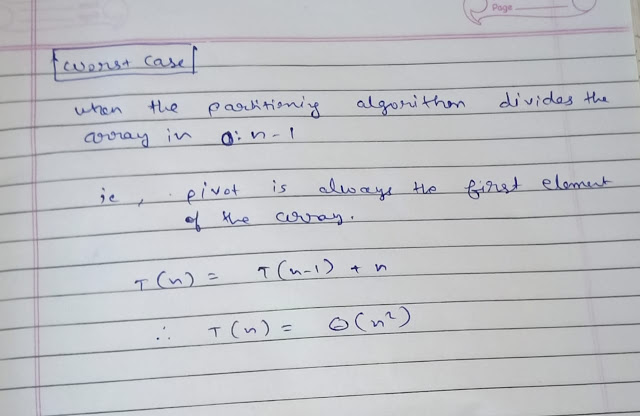 Page
Worst Case
when the partitioning algorithm divides the
array in 0:n-1
ie, pivot is always the first element
of the array.
T(n) = T(n-1) + n
∴ T(n) = Θ(n²)